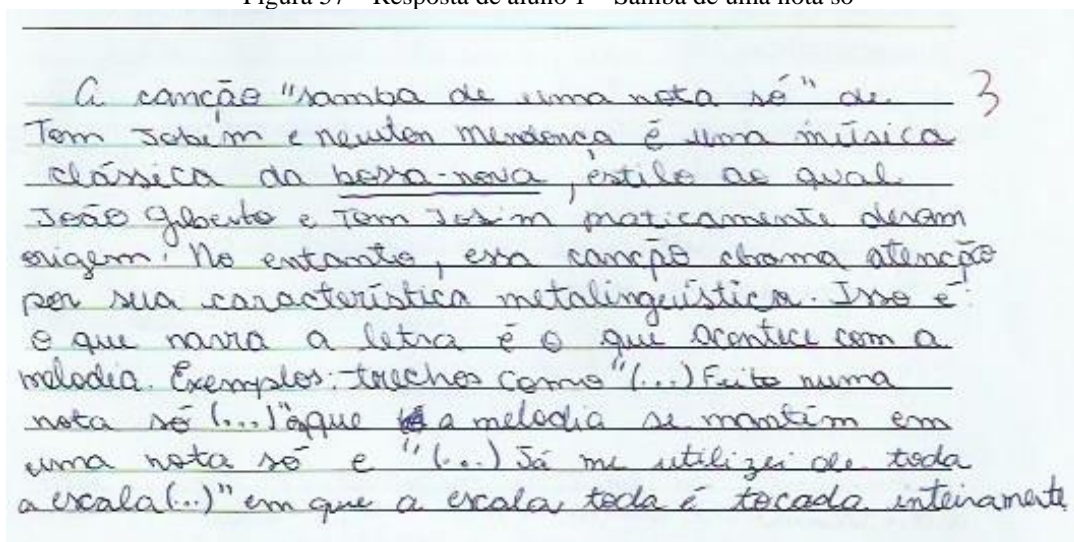 Figura 57 – Resposta de aluno 1 – Samba de uma nota só
A canção "samba de uma nota só" de 3
Tom Jobim e newton mendonça é uma música
clássica da bossa-nova, estilo ao qual
João Gilberto e Tom Jobim praticamente deram
origem. No entanto, essa canção chama atenção
por sua característica metalinguística. Isso é:
o que narra a letra é o que acontece com a
melodia. Exemplos: trechos como "(...) Feito numa
nota só (...)" que a melodia se mantém em
uma nota só e "(...) Já me utilizei de toda
a escala (...)" em que a escala toda é tocada inteiramente